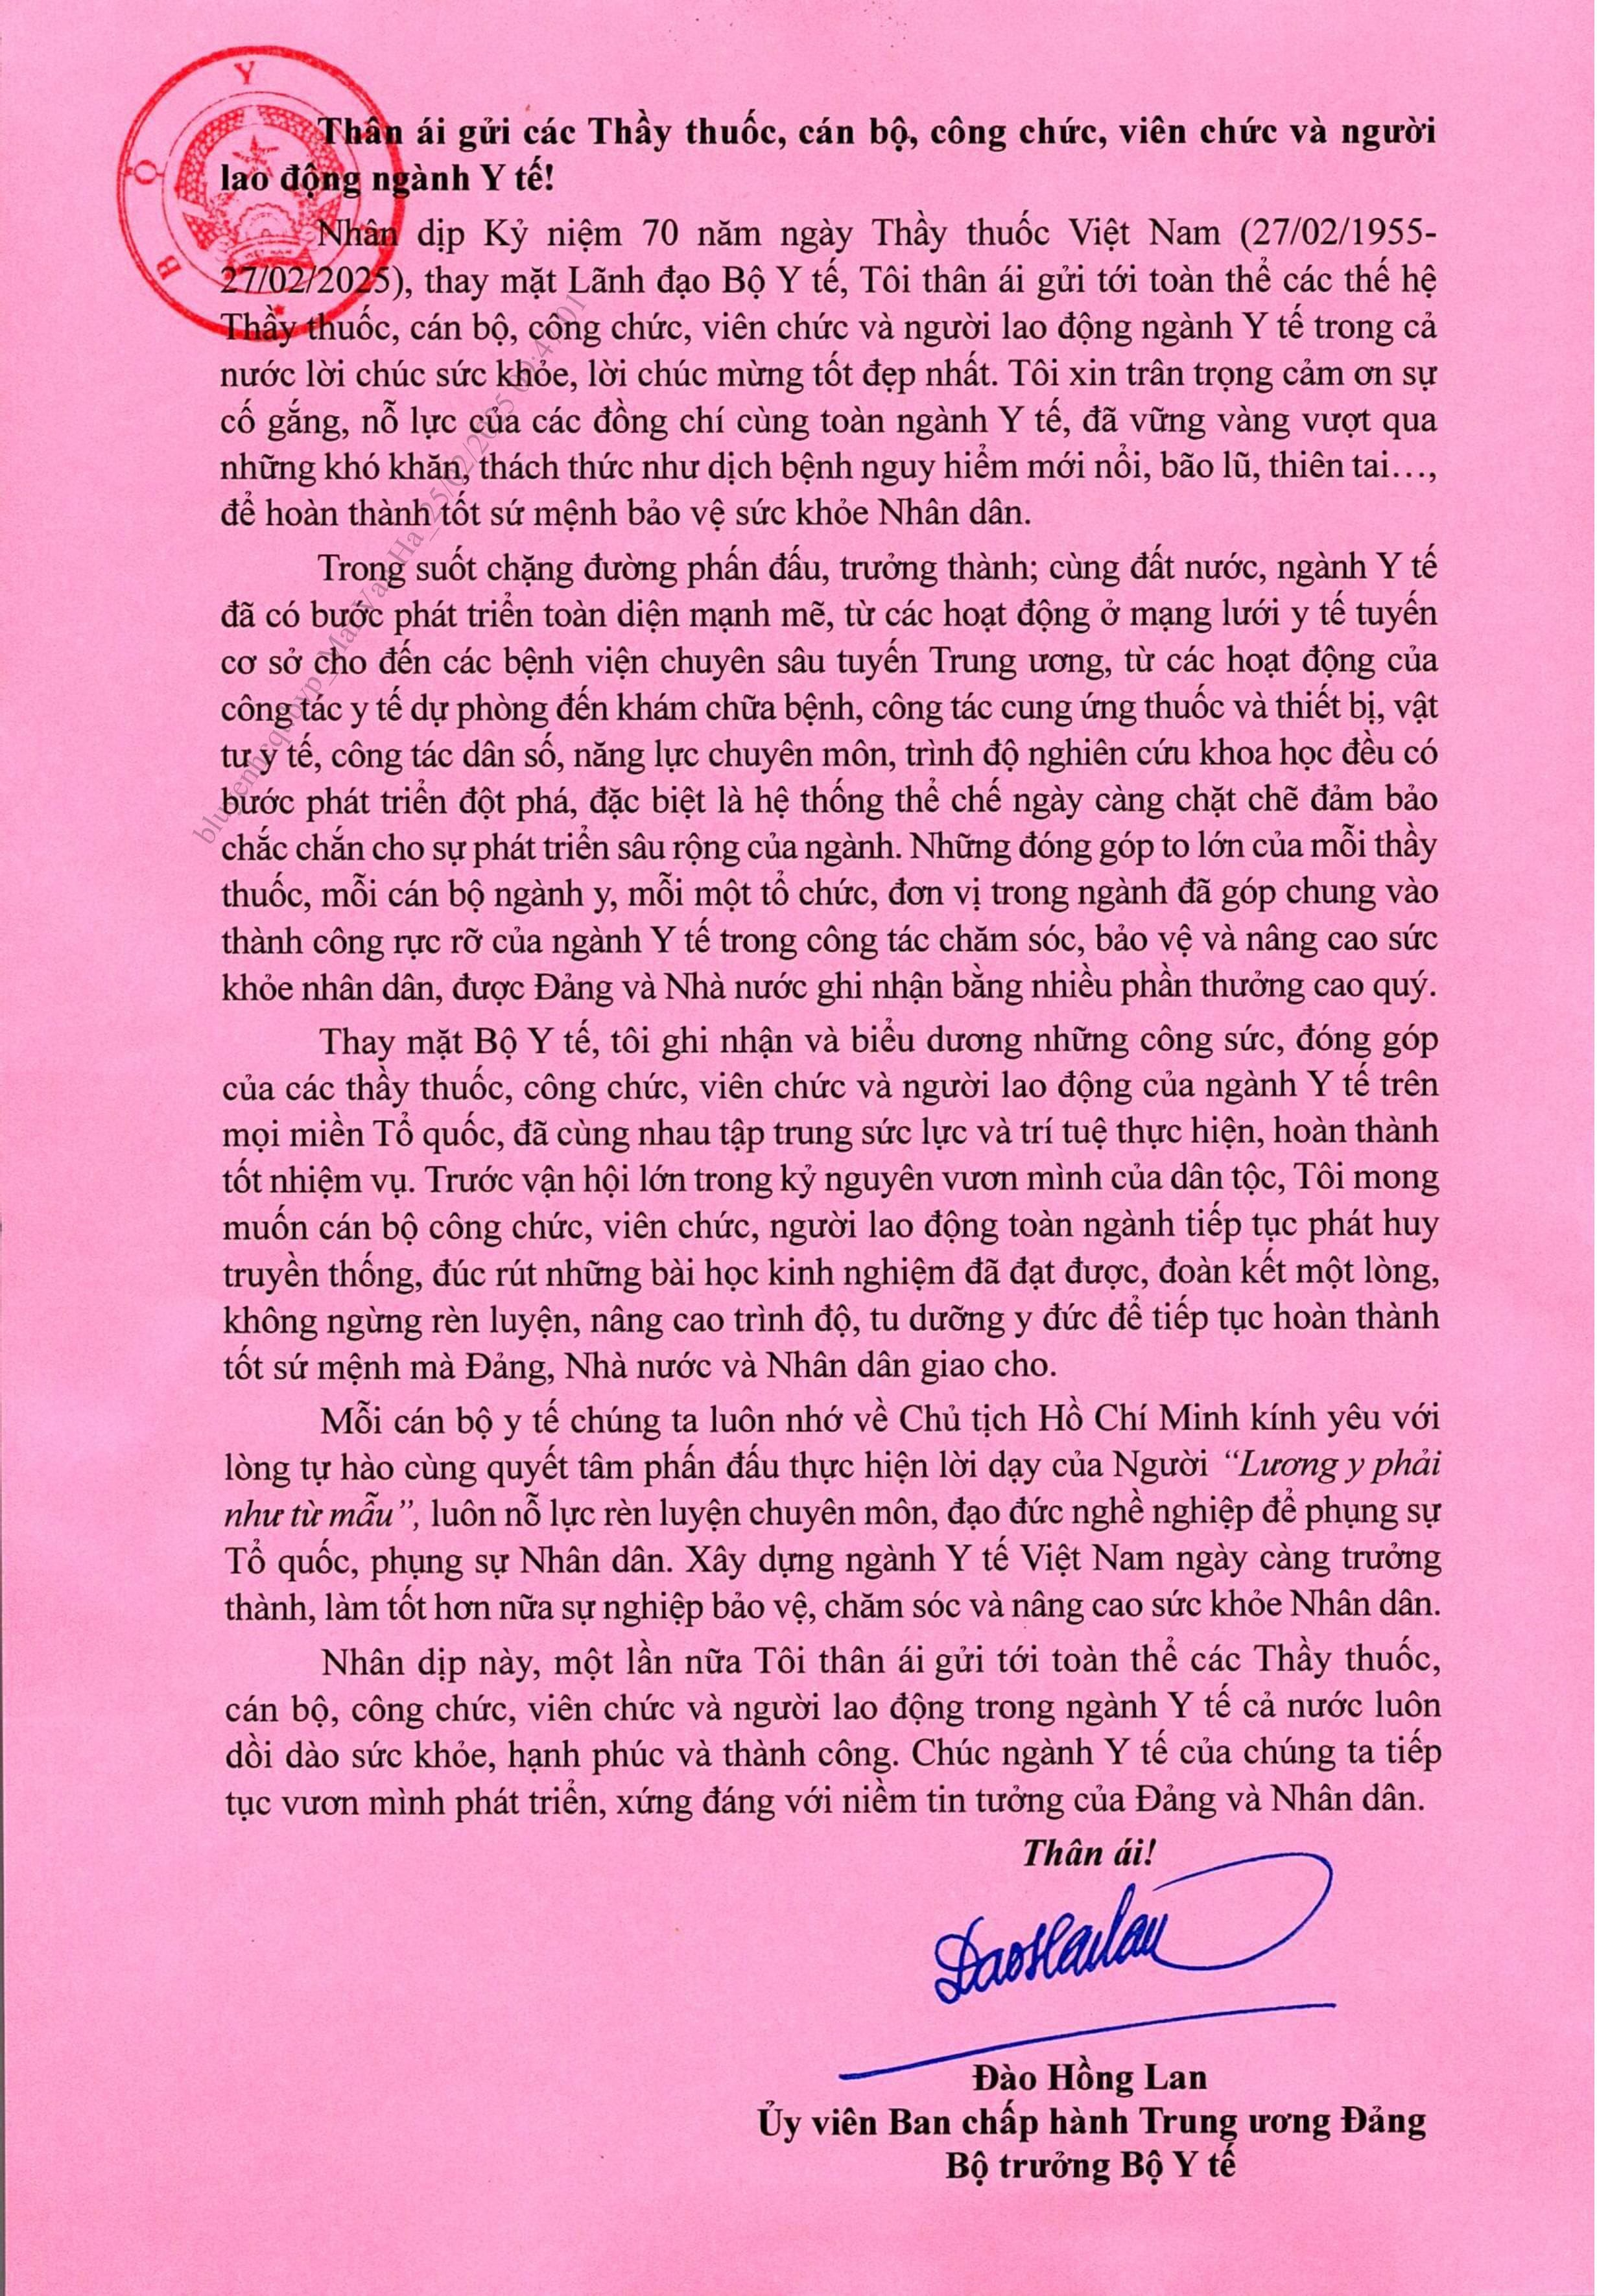 BỘ Y
Thân ái gửi các Thầy thuốc, cán bộ, công chức, viên chức và người
lao động ngành Y tế!
Nhân dịp Kỷ niệm 70 năm ngày Thầy thuốc Việt Nam (27/02/1955-
27/02/2025), thay mặt Lãnh đạo Bộ Y tế, Tôi thân ái gửi tới toàn thể các thế hệ
Thầy thuốc, cán bộ, công chức, viên chức và người lao động ngành Y tế trong cả
nước lời chúc sức khỏe, lời chúc mừng tốt đẹp nhất. Tôi xin trân trọng cảm ơn sự
cố gắng, nỗ lực của các đồng chí cùng toàn ngành Y tế, đã vững vàng vượt qua
những khó khăn, thách thức như dịch bệnh nguy hiểm mới nổi, bão lũ, thiên tai…,
để hoàn thành tốt sứ mệnh bảo vệ sức khỏe Nhân dân.
Trong suốt chặng đường phấn đấu, trưởng thành; cùng đất nước, ngành Y tế
đã có bước phát triển toàn diện mạnh mẽ, từ các hoạt động ở mạng lưới y tế tuyến
cơ sở cho đến các bệnh viện chuyên sâu tuyến Trung ương, từ các hoạt động của
công tác y tế dự phòng đến khám chữa bệnh, công tác cung ứng thuốc và thiết bị, vật
tư y tế, công tác dân số, năng lực chuyên môn, trình độ nghiên cứu khoa học đều có
bước phát triển đột phá, đặc biệt là hệ thống thể chế ngày càng chặt chẽ đảm bảo
chắc chắn cho sự phát triển sâu rộng của ngành. Những đóng góp to lớn của mỗi thầy
thuốc, mỗi cán bộ ngành y, mỗi một tổ chức, đơn vị trong ngành đã góp chung vào
thành công rực rỡ của ngành Y tế trong công tác chăm sóc, bảo vệ và nâng cao sức
khỏe nhân dân, được Đảng và Nhà nước ghi nhận bằng nhiều phần thưởng cao quý.
Thay mặt Bộ Y tế, tôi ghi nhận và biểu dương những công sức, đóng góp
của các thầy thuốc, công chức, viên chức và người lao động của ngành Y tế trên
mọi miền Tổ quốc, đã cùng nhau tập trung sức lực và trí tuệ thực hiện, hoàn thành
tốt nhiệm vụ. Trước vận hội lớn trong kỷ nguyên vươn mình của dân tộc, Tôi mong
muốn cán bộ công chức, viên chức, người lao động toàn ngành tiếp tục phát huy
truyền thống, đúc rút những bài học kinh nghiệm đã đạt được, đoàn kết một lòng,
không ngừng rèn luyện, nâng cao trình độ, tu dưỡng y đức để tiếp tục hoàn thành
tốt sứ mệnh mà Đảng, Nhà nước và Nhân dân giao cho.
Mỗi cán bộ y tế chúng ta luôn nhớ về Chủ tịch Hồ Chí Minh kính yêu với
lòng tự hào cùng quyết tâm phấn đấu thực hiện lời dạy của Người “Lương y phải
như từ mẫu”, luôn nỗ lực rèn luyện chuyên môn, đạo đức nghề nghiệp để phụng sự
Tổ quốc, phụng sự Nhân dân. Xây dựng ngành Y tế Việt Nam ngày càng trưởng
thành, làm tốt hơn nữa sự nghiệp bảo vệ, chăm sóc và nâng cao sức khỏe Nhân dân.
Nhân dịp này, một lần nữa Tôi thân ái gửi tới toàn thể các Thầy thuốc,
cán bộ, công chức, viên chức và người lao động trong ngành Y tế cả nước luôn
dồi dào sức khỏe, hạnh phúc và thành công. Chúc ngành Y tế của chúng ta tiếp
tục vươn mình phát triển, xứng đáng với niềm tin tưởng của Đảng và Nhân dân.
Thân ái!
DaoHanlan
Đào Hồng Lan
Ủy viên Ban chấp hành Trung ương Đảng
Bộ trưởng Bộ Y tế